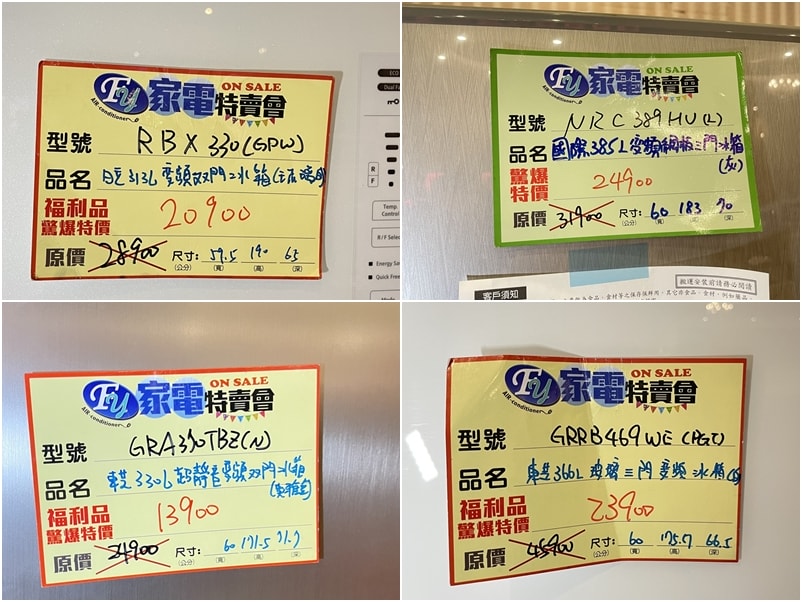 ECO
Dual Fa
R
F
Temp.
Control
R/F Selec
Energy Sa
Quick Free
Mode
FU 家電特賣會 ON SALE
AIR-conditioner
型號 RBX330(GPW)
品名 日立313L變頻双門冰箱(琉璃白)
福利品
驚爆特價 20900
原價 28900 尺寸: 59.5 190 65
(公分) (寬) (高) (深)
FU 家電特賣會 ON SALE
AIR-conditioner
型號 NRC389HV(L)
品名 國際385L變頻鋼板三門冰箱
(灰)
驚爆
特價 24900
原價 31900 尺寸: 60 183 70
(公分) (寬) (高) (深)
搬運安裝前請務必閱讀
客戶須知
FU 家電特賣會 ON SALE
AIR-conditioner
型號 GRA330TBZ(N)
品名 東芝330L超靜音變頻双門冰箱
(典雅金)
福利品
驚爆特價 13900
原價 24900 尺寸: 60 171.5 71.7
(公分) (寬) (高) (深)
FU 家電特賣會 ON SALE
AIR-conditioner
型號 GRRB469WE(PGT)
品名 東芝366L玻璃三門變頻冰箱
福利品
驚爆特價 23900
原價 45900 尺寸: 60 175.7 66.5
(公分) (寬) (高) (深)